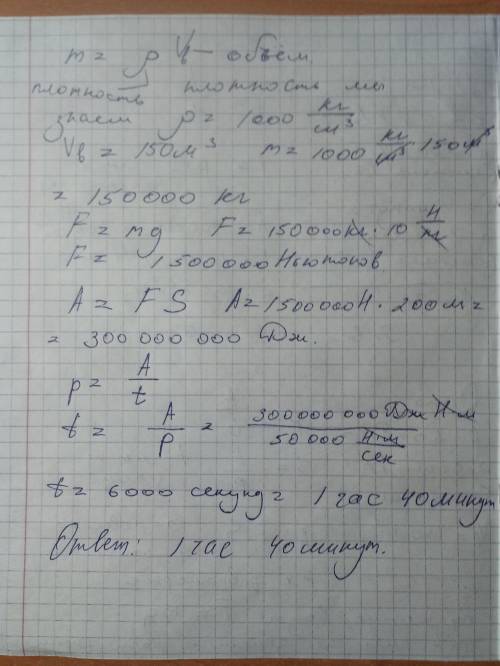 m = ρ Vв — объём
плотность плотность мы
знаем ρ = 1000 кг/см³
Vв = 150м³ m = 1000 кг/м³ 150м³
= 150000 кг
F = mg F = 150000кг · 10 Н/кг
F = 1500000Ньютонов
A = FS A = 1500000Н · 200м =
= 300 000 000 Дж.
p = A/t
t = A/P = 300000 000 Дж Н·м / 50 000 Н·м/сек
t = 6000 секунд = 1 час 40минут
Ответ: 1 час 40минут.